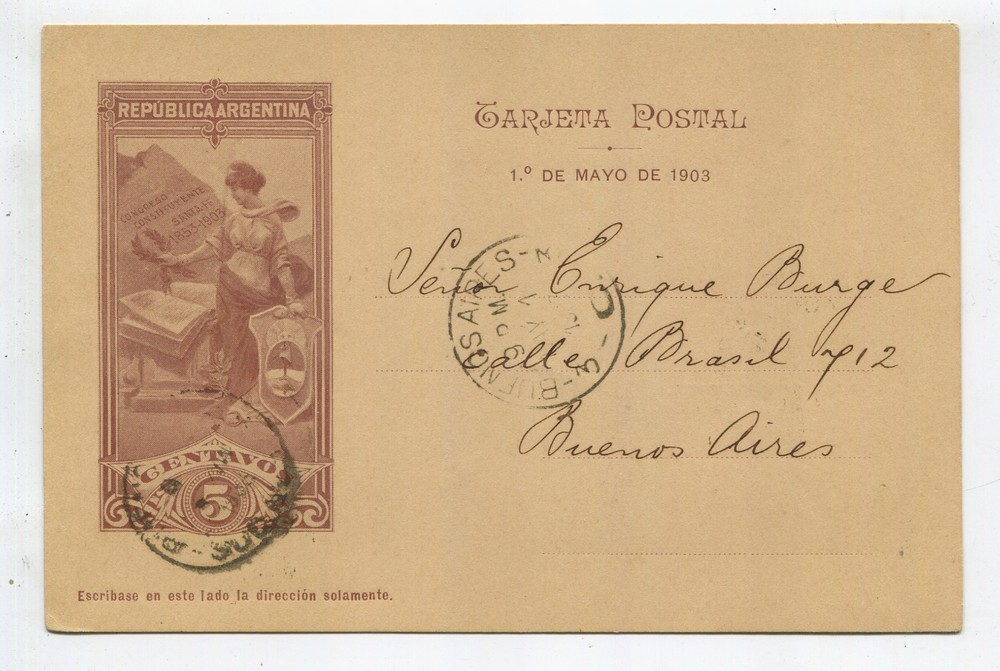 REPÚBLICA ARGENTINA
CONGRESO
CONSTITUYENTE
SANTA FE
1853-1903
CENTAVOS
5
TARJETA POSTAL
1.º DE MAYO DE 1903
Señor Enrique Burge
Calle Brasil 712
Buenos Aires
BUENOS AIRES
Escríbase en este lado la dirección solamente.